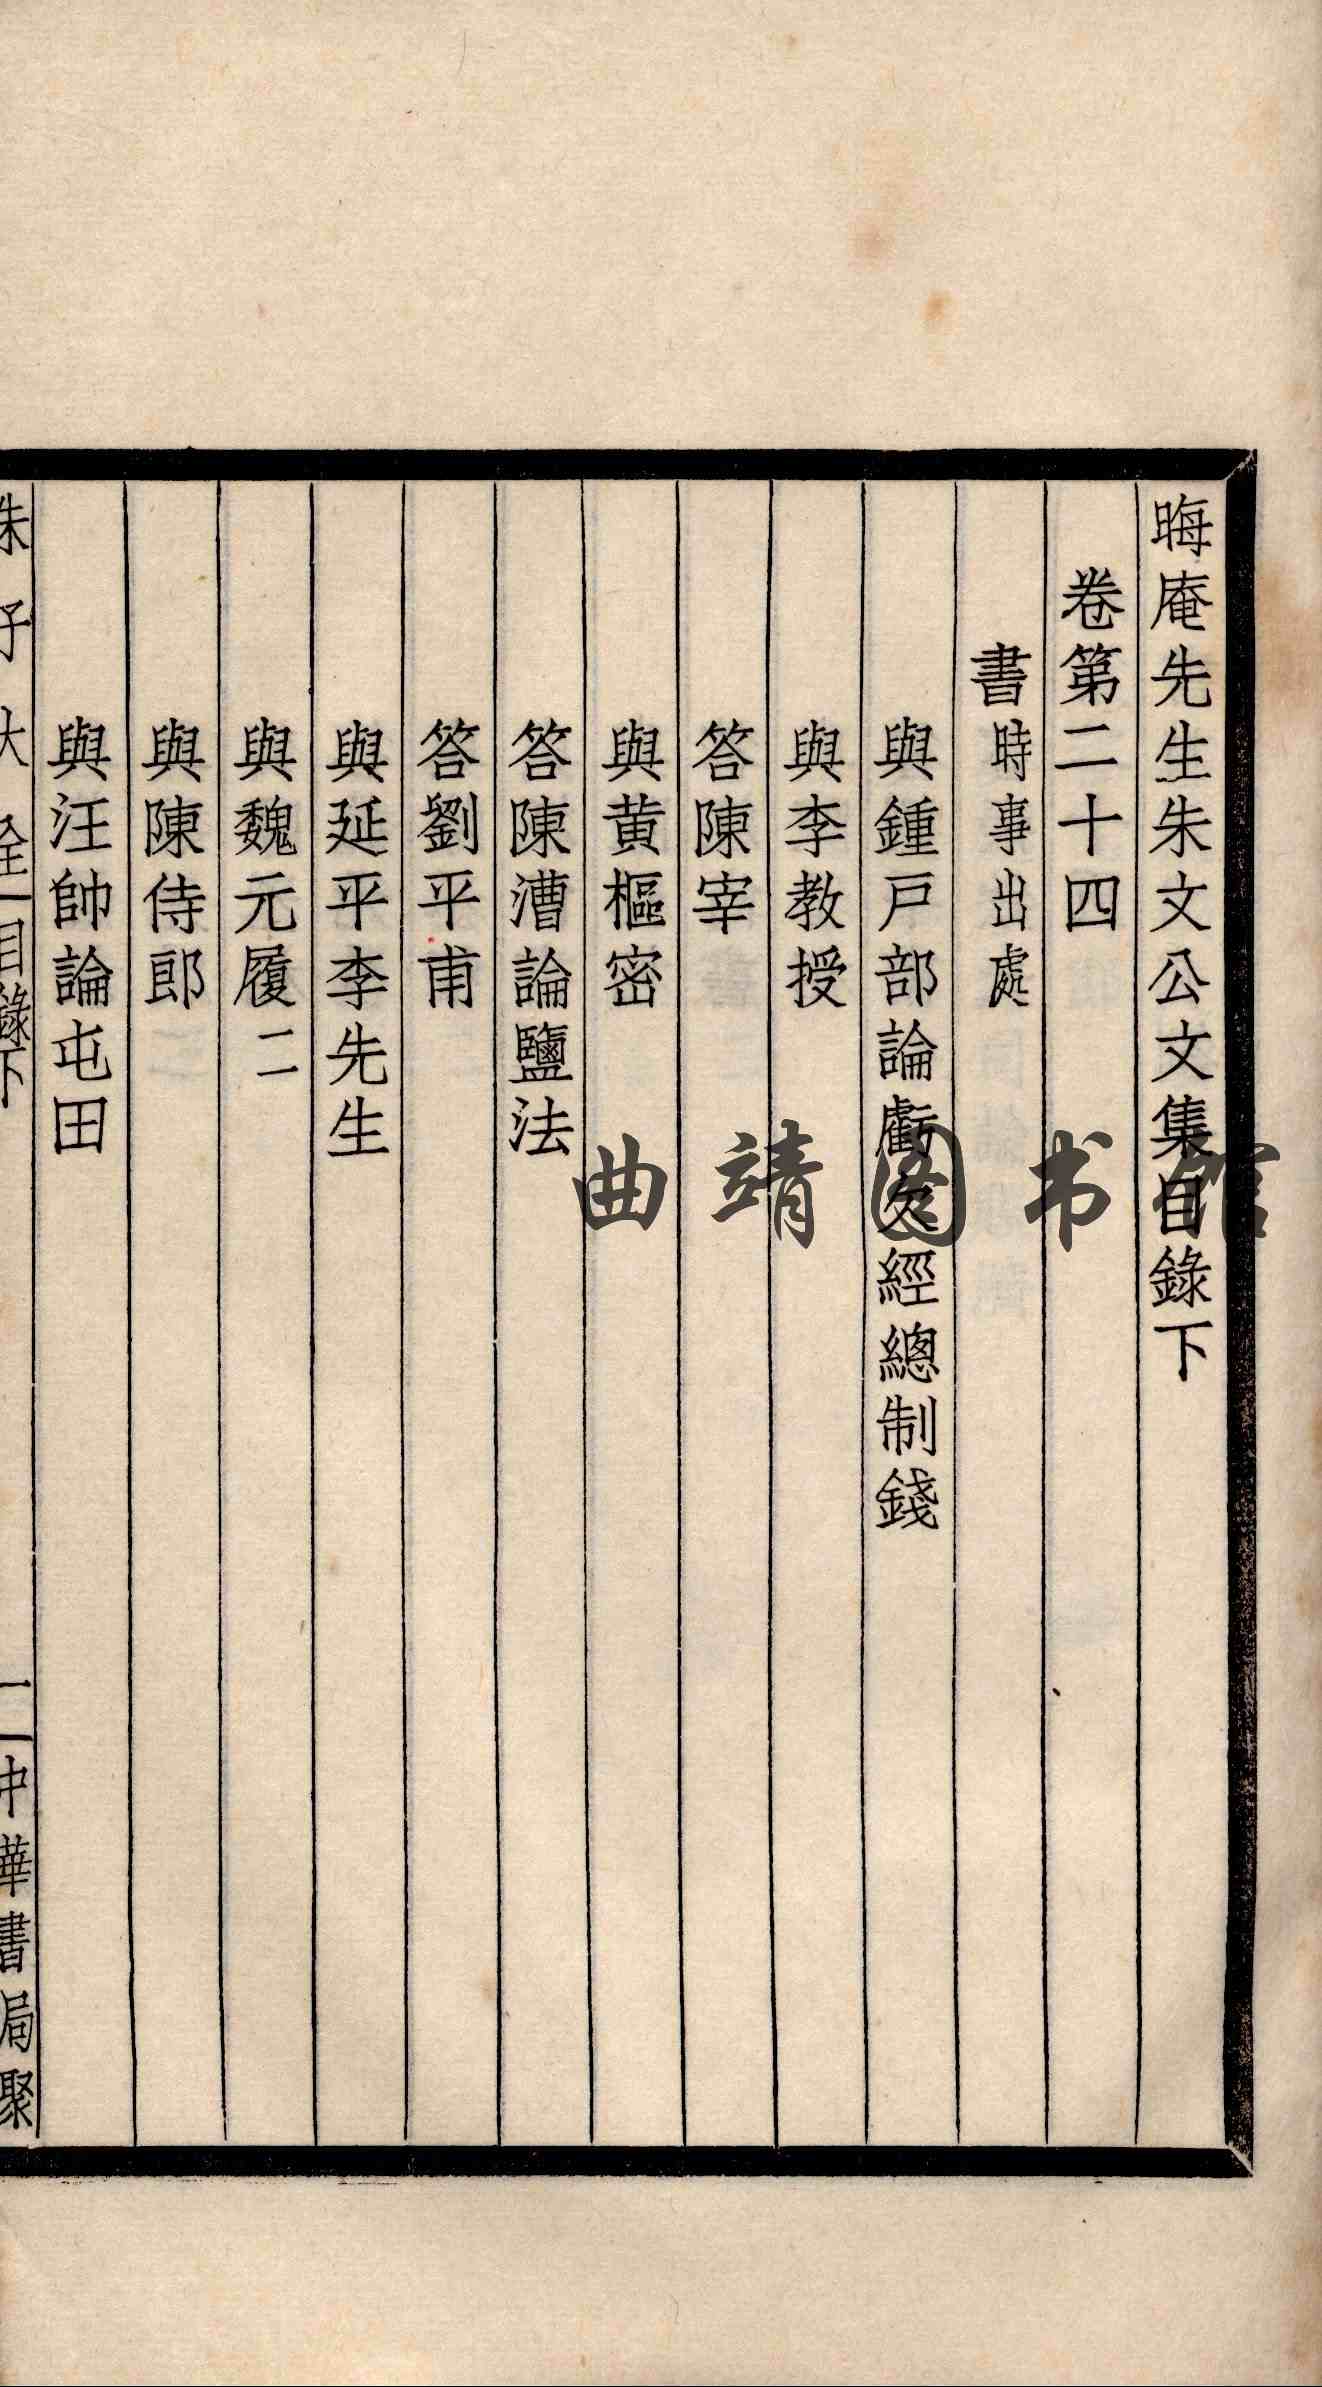 晦庵先生朱文公文集目錄下
卷第二十四
書時事出處
與鍾戶部論虧欠經總制錢
與李教授
答陳宰
與黃樞密
答陳漕論鹽法
答劉平甫
與延平李先生
與魏元履二
與陳侍郎
與汪帥論屯田
朱子大全 目錄下 一 中華書局聚
曲靖图书馆